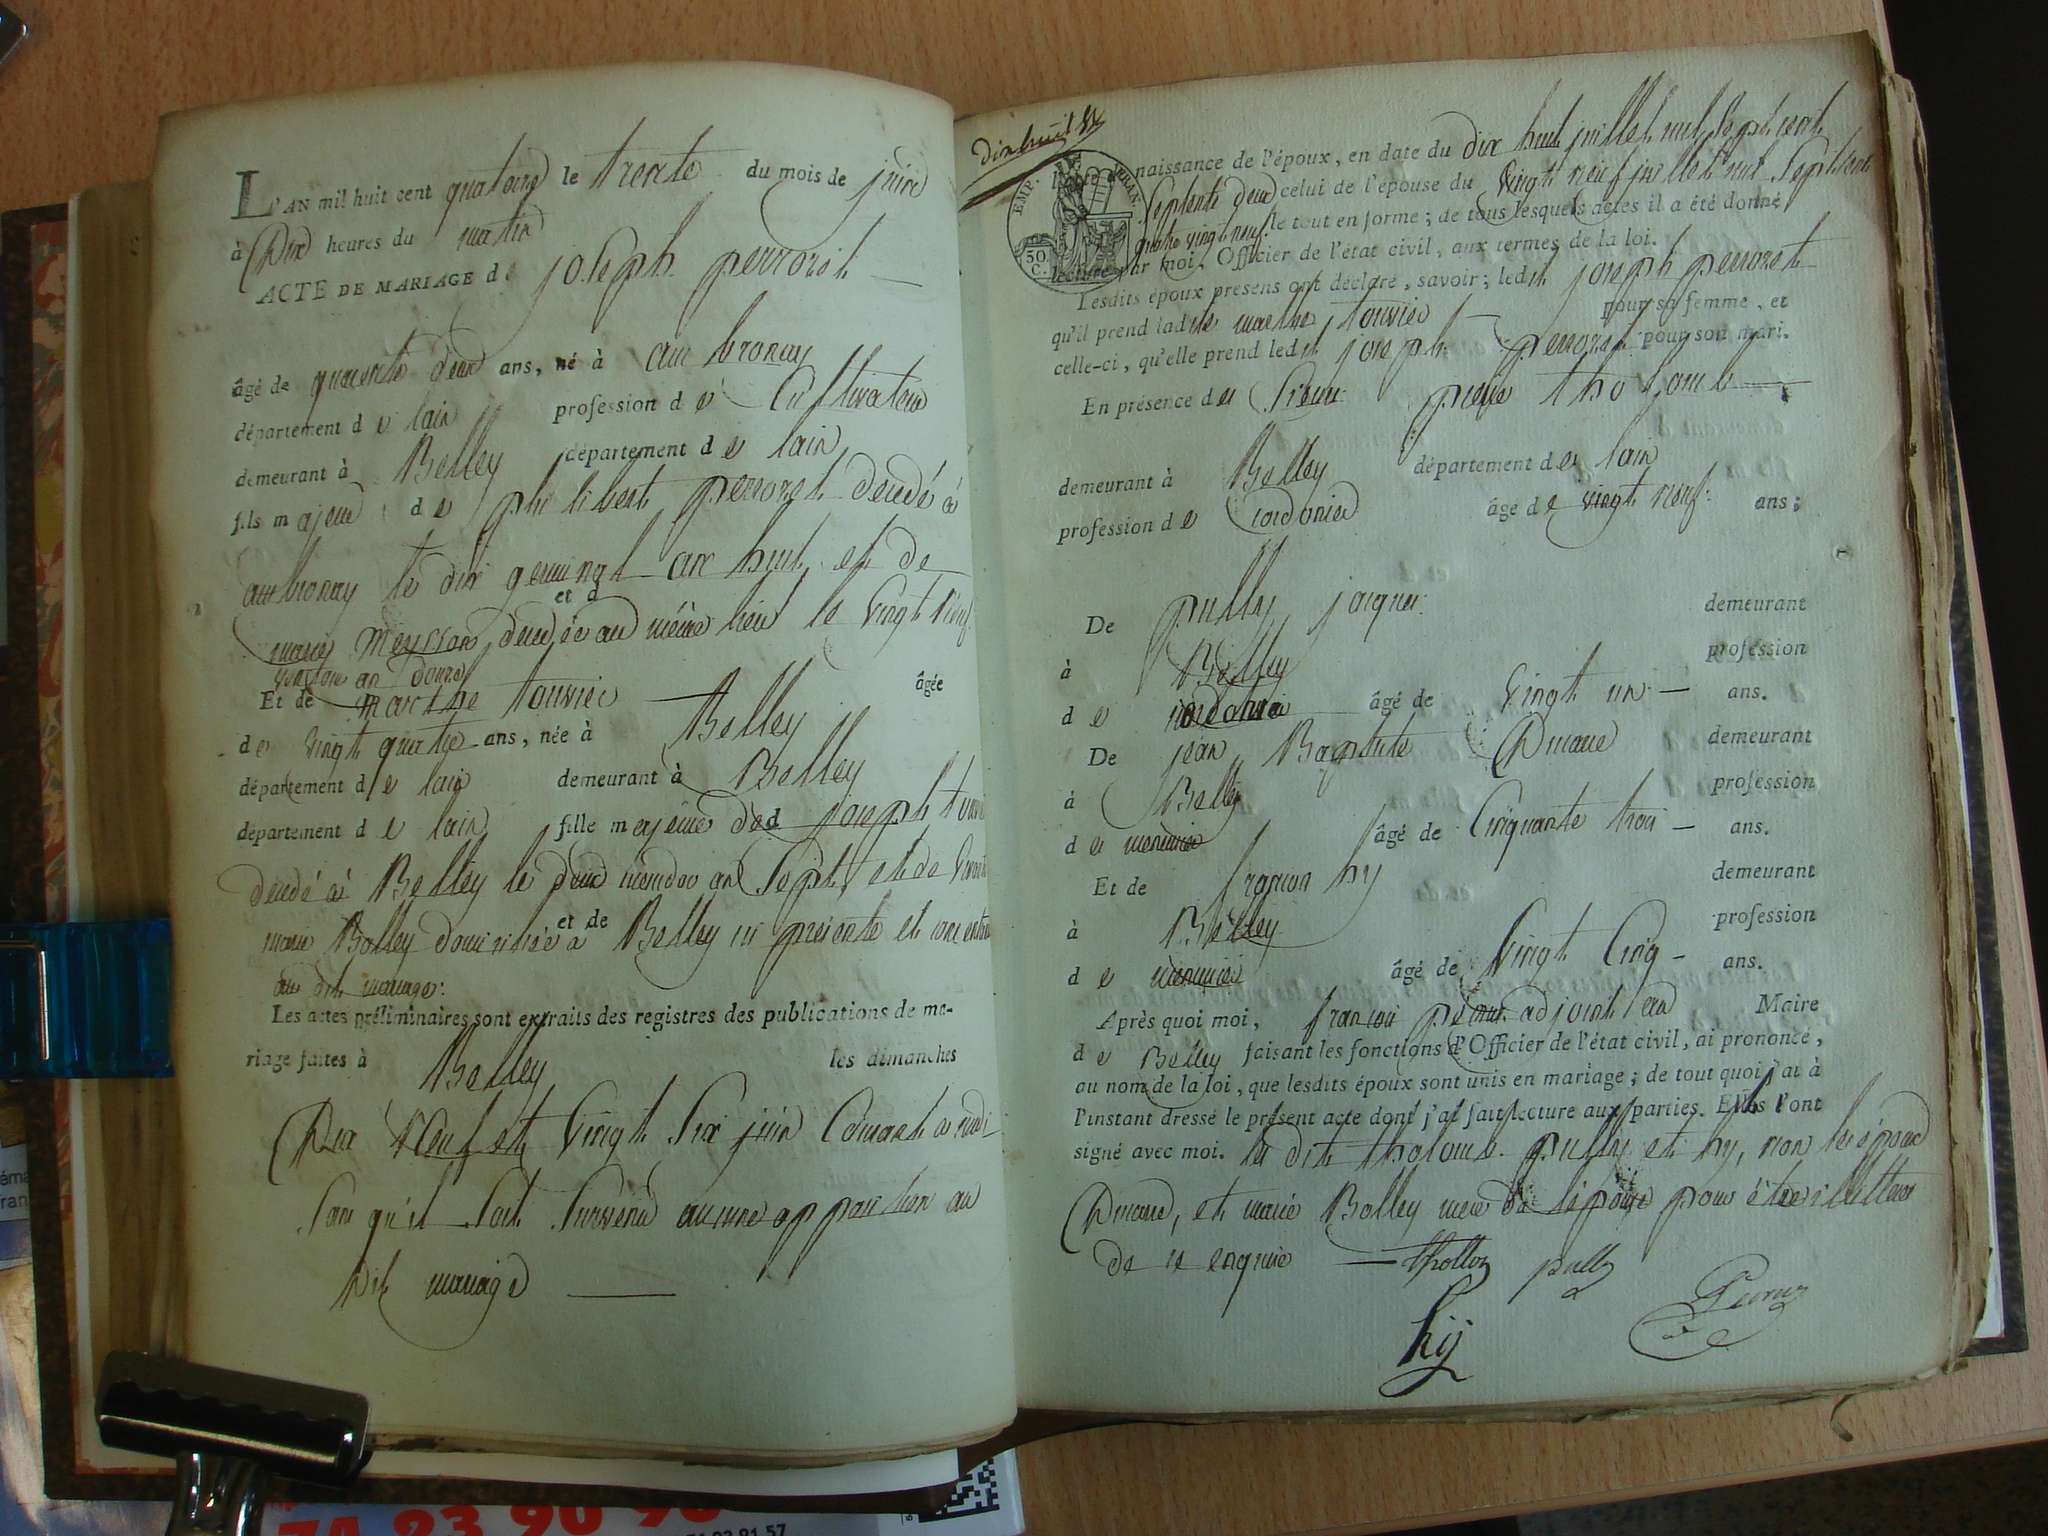 L'AN mil huit cent quatorze le trente du mois de juin
à Dix heures du matin
ACTE DE MARIAGE de joseph perrozet
âgé de quarente deux ans, né à ambronay
département de lain profession de Cultivateur
demeurant à Belley département de lain
fils majeur de philibert perrozet décédé à
ambronay le dix germinal an huit et de
et d
marie Meysson décédée au même lieu le vingt
an douze
Et de marthe touvier âgée
de vingt quatre ans, née à Belley
département de lain demeurant à Belley
département de lain fille majeure de d joseph touvier
décédé à Belley le deux messidor an Sept, et de
et de
marie Bolley domiciliée à Belley ici présente et consentante
au dit mariage.
Les actes préliminaires sont extraits des registres des publications de ma-
riage faites à Belley les dimanches
Dix Neuf et Vingt Six juin Courant à midi
Sans qu'il Soit Survenu aucune opposition au
Dit mariage
dix huit
EMP. FRAN.
50 C.
naissance de l'époux, en date du dix huit juillet mil sept cent
Septente deux celui de l'épouse du vingt neuf juillet mil Sept Cent
quatre vingt neuf le tout en forme; de tous lesquels actes il a été donné
lecture par moi, Officier de l'état civil, aux termes de la loi.
Lesdits époux présens ont déclaré, savoir; ledit joseph perrozet
qu'il prend ladite marthe touvier pour sa femme, et
celle-ci, qu'elle prend ledit joseph perrozet pour son mari.
En présence de Sieur pierre tholomb
demeurant à Belley département de lain
profession de Cordonier âgé de vingt neuf ans;
De pully jacques demeurant
à Belley profession
de Cordonier âgé de vingt un ans.
De jean Baptiste Dmare demeurant
à Belley profession
de menuisier âgé de Cinquante trois ans.
Et de françois hy demeurant
à Belley profession
de menuisier âgé de Vingt Cinq ans.
Après quoi moi, françois adjoint au Maire
de Belley faisant les fonctions d'Officier de l'état civil, ai prononcé,
au nom de la loi, que lesdits époux sont unis en mariage; de tout quoi j'ai à
l'instant dressé le présent acte dont j'ai fait lecture aux parties. Elles l'ont
signé avec moi. les dits tholomb pully et hy, non les époux
Dmare, et marie Bolley mère de lépouse pour être illettrés
de ce enquis
pully
hij